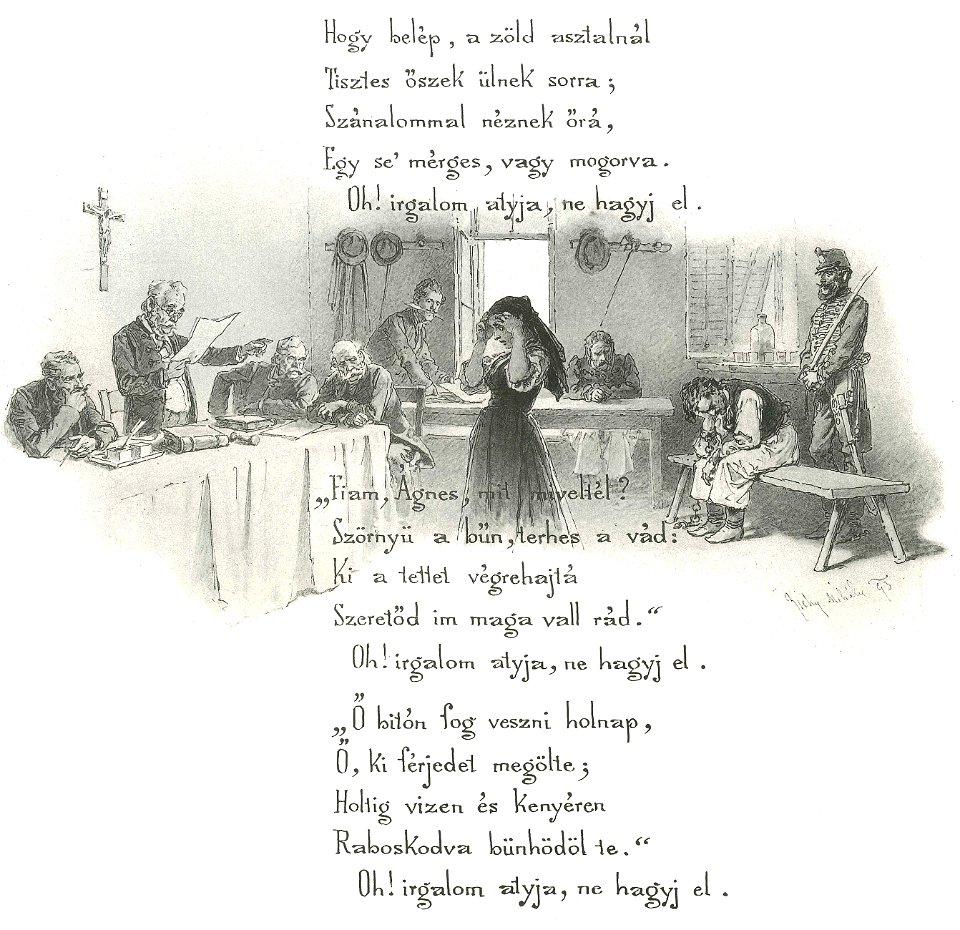 Hogy belép, a zöld asztalnál
Tisztes őszek ülnek sorra;
Szánalommal néznek őrá,
Egy se' mérges, vagy mogorva.
Oh! irgalom atyja, ne hagyj el.
„Fiam, Ágnes, mit miveltél?
Szörnyü a bün, terhes a vád:
Ki a tettet végrehajtá
Szeretőd im maga vall rád.“
Oh! irgalom atyja, ne hagyj el.
„Ő bitón fog veszni holnap,
Ő, ki férjedet megölte;
Holtig vizen és kenyéren
Raboskodva bünhödöl te.“
Oh! irgalom atyja, ne hagyj el.
Zichy Mihály 93